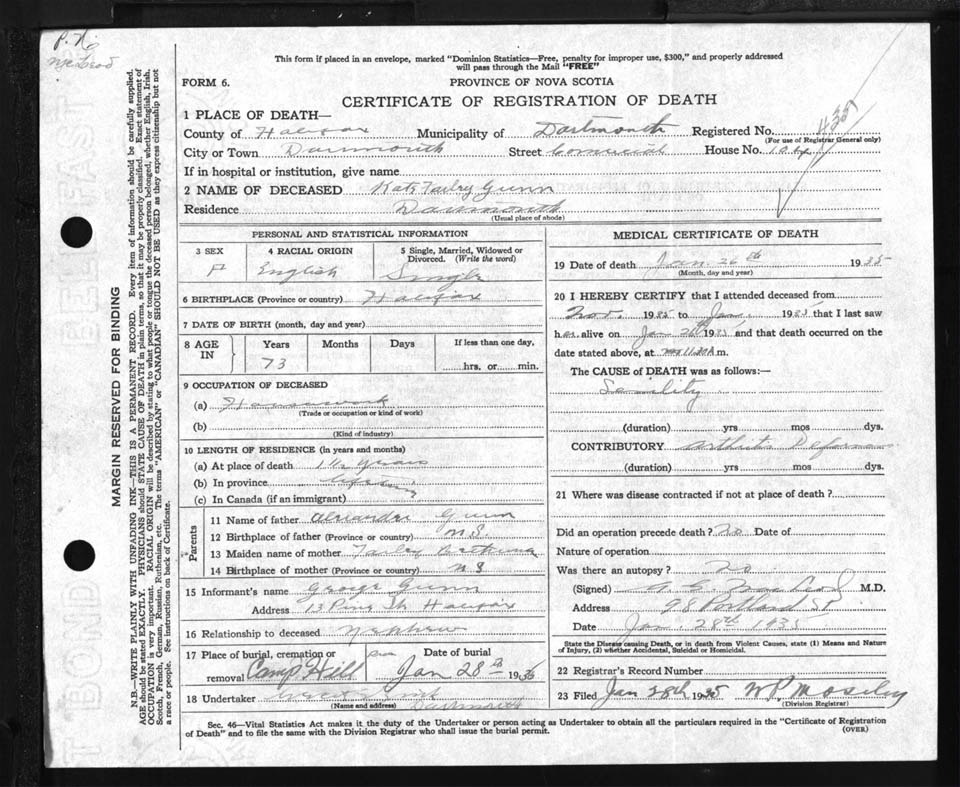 P. N.
McLeod
This form if placed in an envelope, marked "Dominion Statistics—Free, penalty for improper use, $300," and properly addressed
will pass through the Mail "FREE"
FORM 6.
PROVINCE OF NOVA SCOTIA
CERTIFICATE OF REGISTRATION OF DEATH
1 PLACE OF DEATH—
County of Halifax Municipality of Dartmouth Registered No. 435
(For use of Registrar General only)
City or Town Dartmouth Street House No.
If in hospital or institution, give name
2 NAME OF DECEASED Gunn
Residence Dartmouth
(Usual place of abode)
PERSONAL AND STATISTICAL INFORMATION
3 SEX 4 RACIAL ORIGIN 5 Single, Married, Widowed or Divorced. (Write the word)
F English Single
6 BIRTHPLACE (Province or country) Halifax
7 DATE OF BIRTH (month, day and year)
8 AGE IN Years Months Days If less than one day,
73 hrs. or min.
9 OCCUPATION OF DECEASED
(a) Housework
(Trade or occupation or kind of work)
(b)
(Kind of industry)
10 LENGTH OF RESIDENCE (in years and months)
(a) At place of death years
(b) In province
(c) In Canada (if an immigrant)
Parents
11 Name of father Gunn
12 Birthplace of father (Province or country) N.S.
13 Maiden name of mother
14 Birthplace of mother (Province or country) N S
15 Informant's name George Gunn
Address 13 Halifax
16 Relationship to deceased Nephew
17 Place of burial, cremation or removal Camp Hill Date of burial Jan 28th 1936
18 Undertaker Dartmouth
(Name and address)
MEDICAL CERTIFICATE OF DEATH
19 Date of death Jan. 26th 1935
(Month, day and year)
20 I HEREBY CERTIFY that I attended deceased from
Nov. 19 to Jan. 19 that I last saw
her alive on Jan 26th 1935 and that death occurred on
date stated above, at 11.30 A m.
The CAUSE of DEATH was as follows:—
Senility
(duration) yrs mos dys.
CONTRIBUTORY Arthritis
(duration) yrs mos dys.
21 Where was disease contracted if not at place of death?
Did an operation precede death? No Date of
Nature of operation
Was there an autopsy? No
(Signed) MacLeod M.D.
Address 98 Portland St
Date Jan 28th 1935
State the Disease causing Death, or in death from Violent Causes, state (1) Means and Nature
of Injury, (2) whether Accidental, Suicidal or Homicidal.
22 Registrar's Record Number
23 Filed Jan 28th 1935 W P Moseley
(Division Registrar)
Sec. 46—Vital Statistics Act makes it the duty of the Undertaker or person acting as Undertaker to obtain all the particulars required in the "Certificate of Registration
of Death" and to file the same with the Division Registrar who shall issue the burial permit.
(OVER)
MARGIN RESERVED FOR BINDING
N.B.—WRITE PLAINLY WITH UNFADING INK—THIS IS A PERMANENT RECORD. Every item of information should be carefully supplied.
AGE should be stated EXACTLY. PHYSICIANS should STATE CAUSE OF DEATH in plain terms, so that it may be properly classified. Exact statement of
OCCUPATION is very important. RACIAL ORIGIN will be described by stating to what people or tongue the deceased person belonged; whether English, Irish,
Scotch, French, German, Russian, Ruthenian, etc. The terms "AMERICAN" or "CANADIAN" SHOULD NOT BE USED as they express citizenship but not
a race or people. See instructions on back of Certificate.